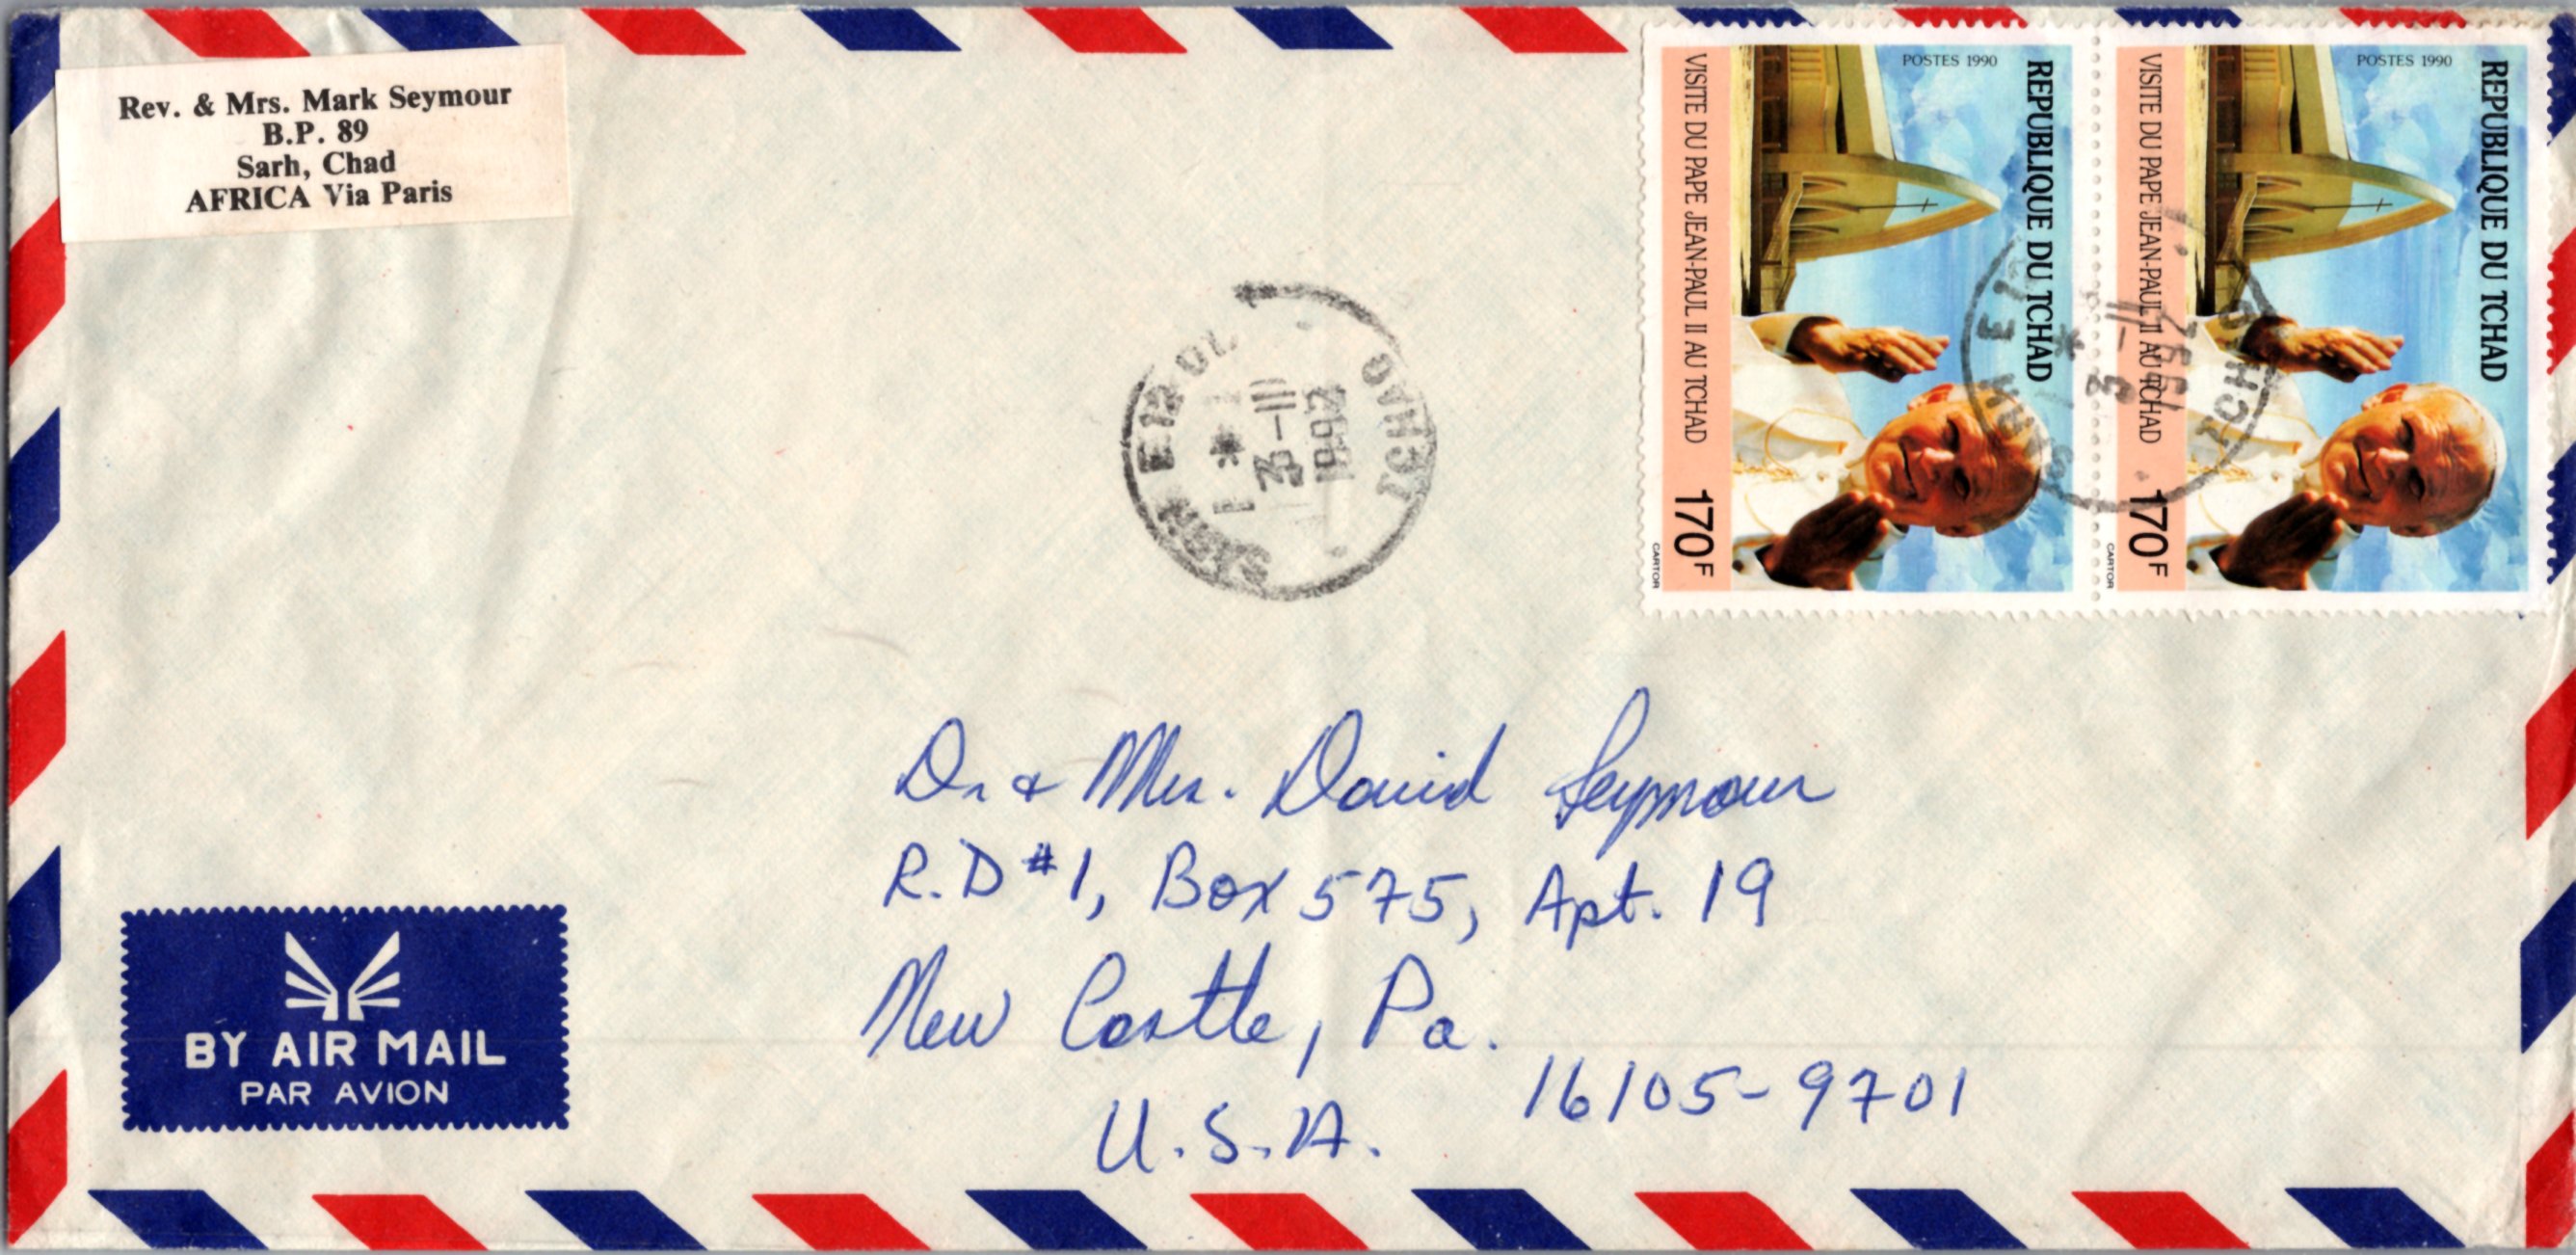 Rev. & Mrs. Mark Seymour
B.P. 89
Sarh, Chad
AFRICA Via Paris
POSTES 1990
REPUBLIQUE DU TCHAD
VISITE DU PAPE JEAN-PAUL II AU TCHAD
170F
CARTOR
POSTES 1990
REPUBLIQUE DU TCHAD
VISITE DU PAPE JEAN-PAUL II AU TCHAD
170F
CARTOR
SARH
*
1992
TCHAD
SARH
*
1992
TCHAD
Dr & Mrs. David Seymour
R.D #1, Box 575, Apt. 19
New Castle, Pa.
16105-9701
U.S.A.
BY AIR MAIL
PAR AVION